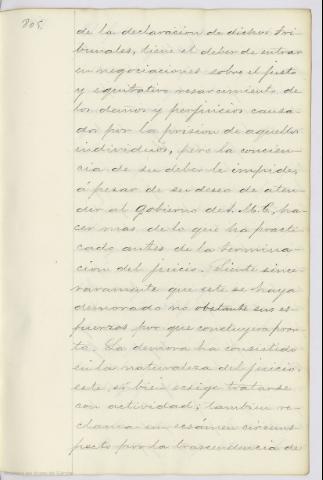 805.
de la declaracion de dichos Tri-
bunales, tiene el deber de entrar
en negociaciones sobre el justo
y equitativo resarcimiento de
los daños y perjuicios causa-
dos por la prision de aquellos
individuos, pero la concien-
cia de su deber le impide,
á pesar de su deseo de aten-
der al Gobierno de S. M. C., ha-
cer mas de lo que ha practi-
cado antes de la termina-
cion del juicio. Siente since-
raramente que este se haya
demorado no obstante sus es-
fuerzos por que concluyera pron-
to. La demora ha consistido
en la naturaleza del juicio;
este, si bien exige tratarse
con actividad, tambien re-
clama un ecsámen circuns-
pecto por la trascendencia de